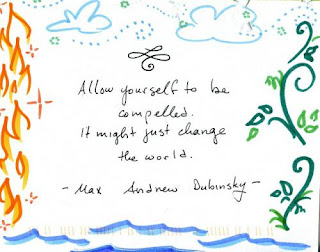 Allow yourself to be
compelled.
It might just change
the world.
- Max Andrew Dubinsky -